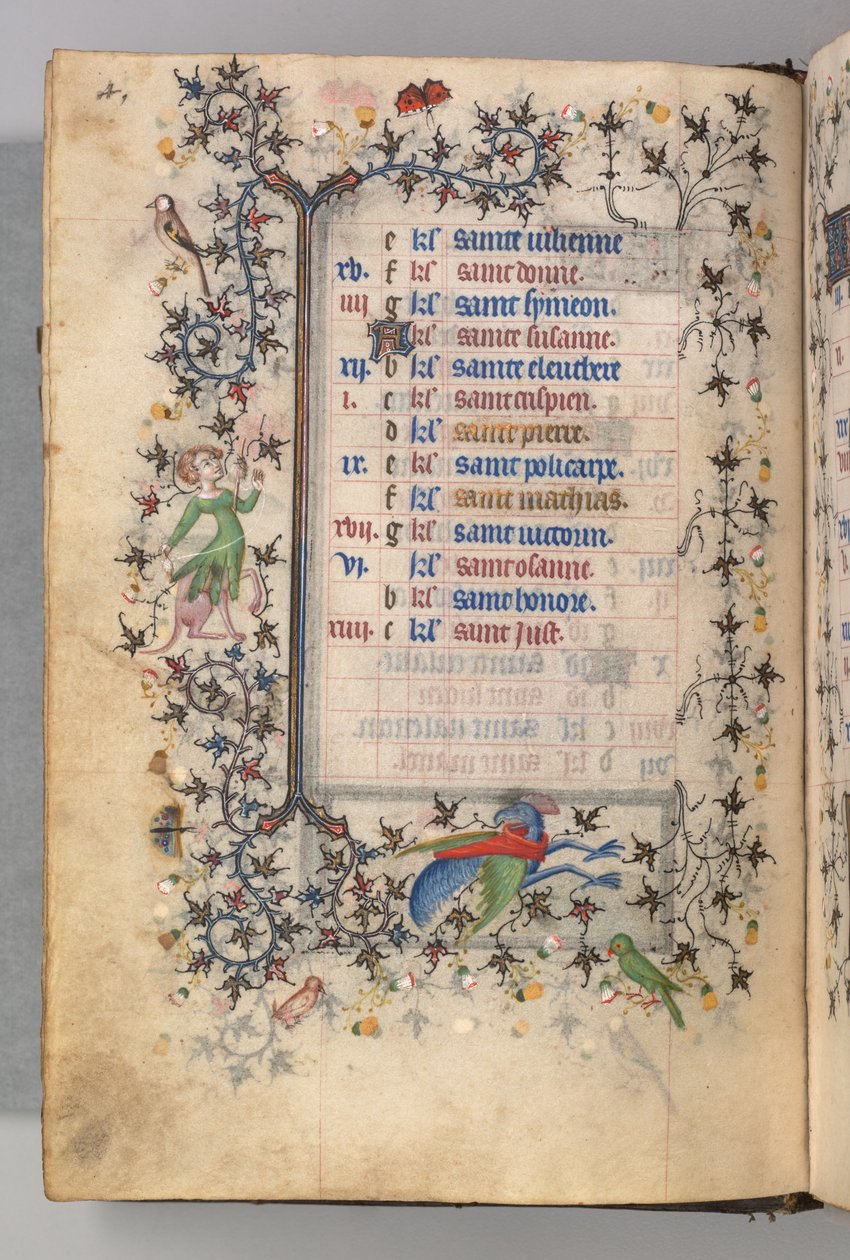 4,
e kl' sainte iulienne
xv. f kl' saint donne.
iiii g kl' saint symeon.
A kl' sainte susanne.
xii. b kl' sainte eleuthere
i. c kl' saint crispien.
d kl' saint pierre.
ix. e kl' saint policarpe.
f kl' saint mathias.
xvii. g kl' saint uictorin.
vi. kl' saint osanne.
b kl' saint honore.
xiiii. c kl' saint just.